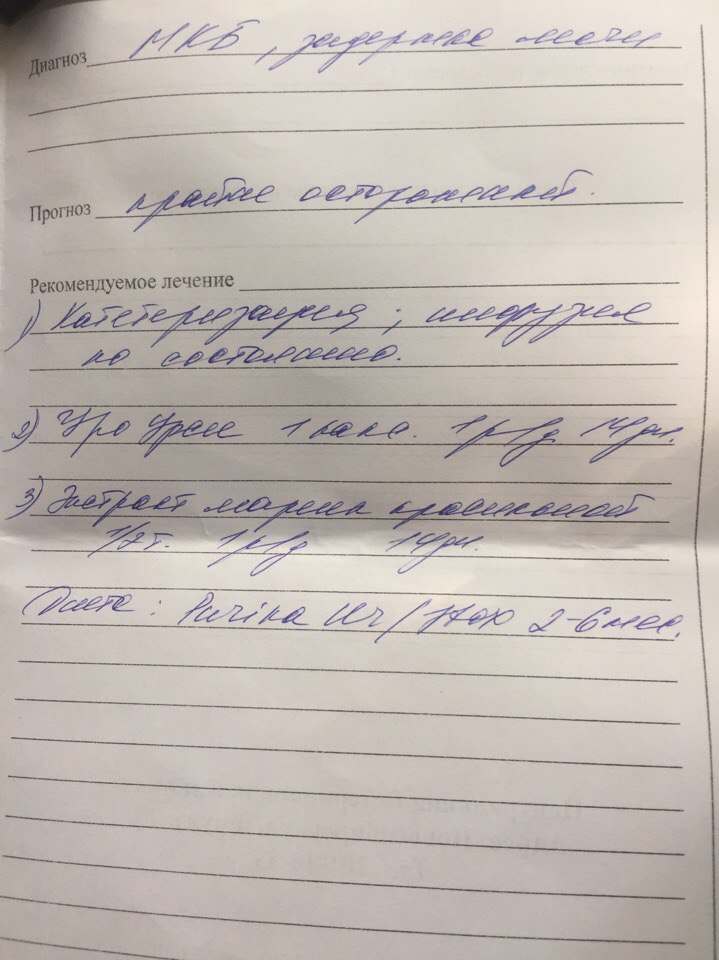 Диагноз МКБ, задержка мочи
Прогноз крайне осторожный.
Рекомендуемое лечение
1) Катетеризация; инфузия
по состоянию.
2) Уро Урси 1 капс. 1 р/д 14 дн.
3) Экстракт марены красильной
1/2 т. 1 р/д 14 дн.
Диета: Purina Ur / St/Ox 2-6 мес.